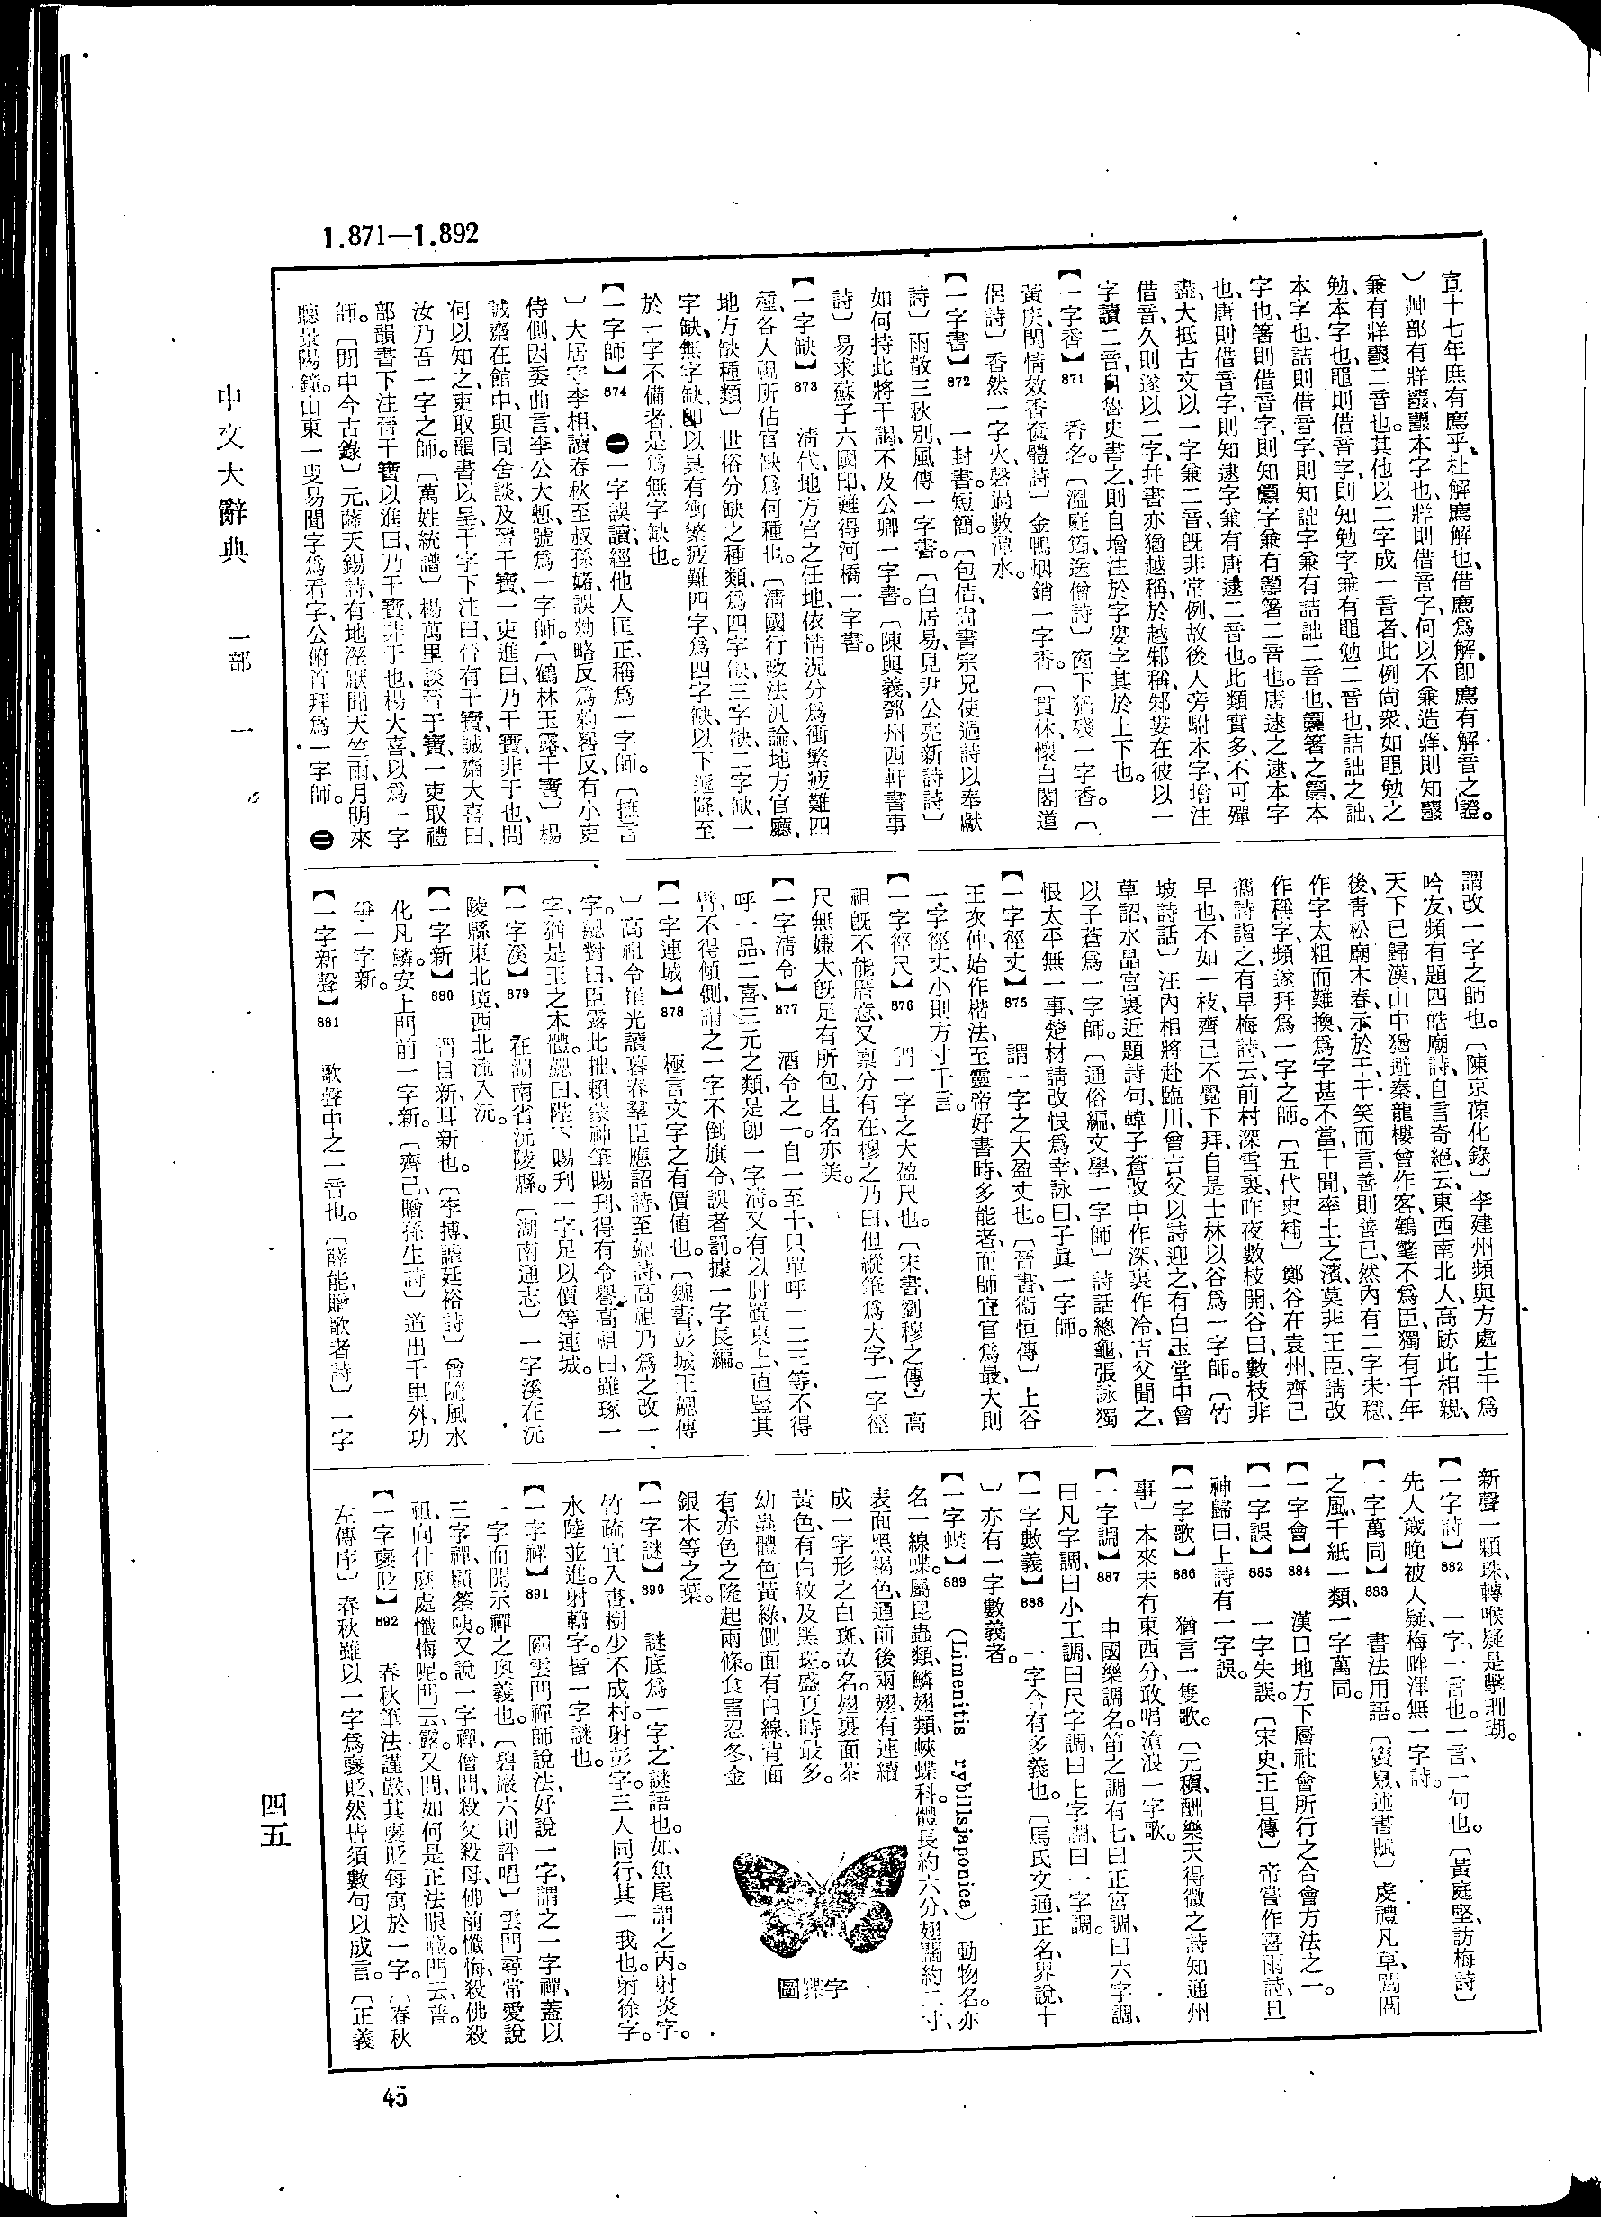 1.871—1.892
宣十七年庶有廌乎、杜解廌解也、借廌爲解、卽廌有解音之證。
〕艸部有
本字也、
則借音字、何以不兼造
則知
兼有
二音也。其他以二字成一音者、此例尙衆、如黽勉之
勉、本字也、黽則借音字、則知勉字兼有黽勉二音也、詰詘之詘、
本字也、詰則借音字、則知詘字兼有詰詘二音也、
箸之
本
字也、箸則借音字、則知
字兼有
箸二音也。唐逮之逮、本字
也、唐則借音字、則知逮字兼有唐逮二音也。此類實多、不可殫
盡、大抵古文以一字兼二音、旣非常例、故後人旁駙本字、增注
借音、久則遂以二字幷書、亦猶越稱於越、邾稱邾婁、在彼以一
字讀二音、自魯史書之、則自增注於字婁字其於上下也。
【一字香】871 香名。〔溫庭筠、送僧詩〕窗下猶殘一字香。〔
黃庚、閨情效香奩體詩〕金鴨烟銷一字香。〔貫休、懷白閣道
侶詩〕香然一字火、磬過數潭水。
【一字書】872 一封書。短簡。〔包佶、尙書宗兄使過詩以奉獻
詩〕雨散三秋別、風傳一字書。〔白居易、見尹公亮新詩詩〕
如何持此將干謁、不及公卿一字書。〔陳與義、鄧州西軒書事
詩〕易求蘇子六國印、難得河橋一字書。
【一字缺】873 淸代、地方官之任地、依情況分爲衝繁疲難四
種、各人視所佔官缺爲何種也。〔淸國行政法汎論、地方官廳、
地方缺種類〕世俗分缺之種類、爲四字缺、三字缺、二字缺、一
字缺、無字缺、卽以具有衝繁疲難四字爲四字缺、以下遞降、至
於一字不備者、是爲無字缺也。
【一字師】874 ㊀一字誤讀、經他人匡正、稱爲一字師。〔摭言
〕大居守李相、讀春秋至叔孫婼、誤
略反爲
反、有小吏
侍側、因委曲言、李公大慙、號爲一字師。〔鶴林玉露、干寶〕楊
誠齋在館中、與同舍談及晉于寶、一吏進曰、乃干寶、非于也、問
何以知之、吏取韻書以呈、干字下注曰、晉有干寶、誠齋大喜曰、
汝乃吾一字之師。〔萬姓統譜〕楊萬里談晉于寶、一吏取禮
部韻書、下注晉干寶、以進曰、乃干寶、非于也、楊大喜、以爲一字
師。〔閒中今古錄〕元薩天錫詩、有地溼厭聞天竺雨、月明來
聽景陽鐘。山東一叟易聞字爲看字、公俯首拜爲一字師。㊁
謂改一字之師也。〔陳京葆化錄〕李建州頻與方處士干爲
吟友、頻有題四皓廟詩、自言奇絕、云、東西南北人、高跡此相親、
天下已歸漢、山中猶避秦、龍樓曾作客、鶴氅不爲臣、獨有千年
後、靑松廟木春、示於干、干笑而言、善則善已、然內有二字未穩、
作字太粗而難換、爲字甚不當、干聞率土之濱、莫非王臣、請改
作稱字、頻遂拜爲一字之師。〔五代史補〕鄭谷在袁州、齊己
攜詩詣之、有早梅詩云、前村深雪裏、昨夜數枝開、谷曰、數枝非
早也、不如一枝、齊己不覺下拜、自是士林以谷爲一字師。〔竹
坡詩話〕汪內相將赴臨川、曾吉父以詩迎之、有白玉堂中曾
草詔、水晶宮裏近題詩句、韓子蒼改中作深、裏作冷、吉父聞之、
以子蒼爲一字師。〔通俗編、文學、一字師〕詩話總龜、張詠獨
恨太平無一事、楚材請改恨爲幸、詠曰、子眞一字師。
【一字徑丈】875 謂一字之大盈丈也。〔晉書、衞恒傳〕上谷
王次仲、始作楷法、至靈帝好書時、多能者、而師宜官爲最、大則
一字徑丈、小則方寸千言。
【一字徑尺】876 謂一字之大盈尺也。〔宋書、劉穆之傳〕高
祖旣不能厝意、又稟分有在、穆之乃曰、但縱筆爲大字、一字徑
尺無嫌、大旣足有所包、且名亦美。
【一字淸令】877 酒令之一。自一至十只單呼一二三等、不得
呼一品二喜三元之類、是卽一字淸。又有以肘置桌上、直豎其
臂、不得傾側、謂之一字不倒旗令、誤者罰。據一字長編。
【一字連城】878 極言文字之有價値也。〔魏書、彭城王勰傳
〕高祖令崔光讀暮春羣臣應詔詩、至勰詩、高祖乃爲之改一
字。勰對曰、臣露此拙、賴蒙神筆賜刊、得有令譽。高祖曰、雖琢一
字、猶是玉之本體。勰曰、陛下賜刊一字、足以價等連城。
【一字溪】879 在湖南省沅陵縣。〔湖南通志〕一字溪在沅
陵縣東北境、西北流入沅。
【一字新】880 謂目新耳新也。〔李搏、讀廷裕詩〕曾隨風水
化凡鱗、安上門前一字新。〔齊己、贈孫生詩〕道出千里外、功
爭一字新。
【一字新聲】881 歌聲中之一音也。〔薛能、贈歌者詩〕一字
新聲一顆珠、轉喉疑是擊珊瑚。
【一字詩】882 一字、一言也。一言一句也。〔黃庭堅、訪梅詩〕
先人歲晚被人疑、梅畔渾無一字詩。
【一字萬同】883 書法用語。〔竇臮、述書賦〕虔禮凡草、閭閻
之風、千紙一類、一字萬同。
【一字會】884 漢口地方下層社會所行之合會方法之一。
【一字誤】885 一字失誤。〔宋史、王旦傳〕帝嘗作喜雨詩、旦
神歸曰、上詩有一字誤。
【一字歌】886 猶言一隻歌。〔元稹、酬樂天得微之詩知通州
事〕本來未有東西分、敢唱滄浪一字歌。
【一字調】887 中國樂調名。笛之調有七、曰正宮調、曰六字調、
曰凡字調、曰小工調、曰尺字調、曰上字調、曰一字調。
【一字數義】888 一字含有多義也。〔馬氏文通、正名、界說、十
〕亦有一字數義者。
【一字蝶】889 (Limenitis rybilsjaponice)動物名。亦
名一線蝶。屬昆蟲類、鱗翅類、蛺蝶科。體長約六分、翅闊約二寸、
表面黑褐色、通前後兩翅、有連續
成一字形之白斑、故名。翅裏面茶
黃色、有白紋及黑斑。盛夏時最多。
幼蟲體色黃綠、側面有白線、背面
有赤色之隆起兩條。食害忍冬、金
銀木等之葉。
圖蝶字一
【一字謎】890 謎底爲一字之謎語也。如、魚尾謂之丙。射炎字。
竹疏宜入畫、樹少不成村、射彭字。三人同行、其一我也。射徐字。
水陸並進。射轎字。皆一字謎也。
【一字禪】891 國雲門禪師說法、好說一字、謂之一字禪、蓋以
一字而開示禪之奧義也。〔碧巖六則評唱〕雲門尋常愛說
三字禪、顧鑒咦。又說一字禪、僧問、殺父殺母、佛前懺悔、殺佛殺
祖、向什麼處懺悔呢、門云、露。又問、如何是正法眼藏。門云、普。
【一字褒貶】892 春秋筆法謹嚴、其褒貶每寓於一字。〔春秋
左傳序〕春秋雖以一字爲褒貶、然皆須數句以成言。〔正義
中文大辭典 一部 一
四五
45